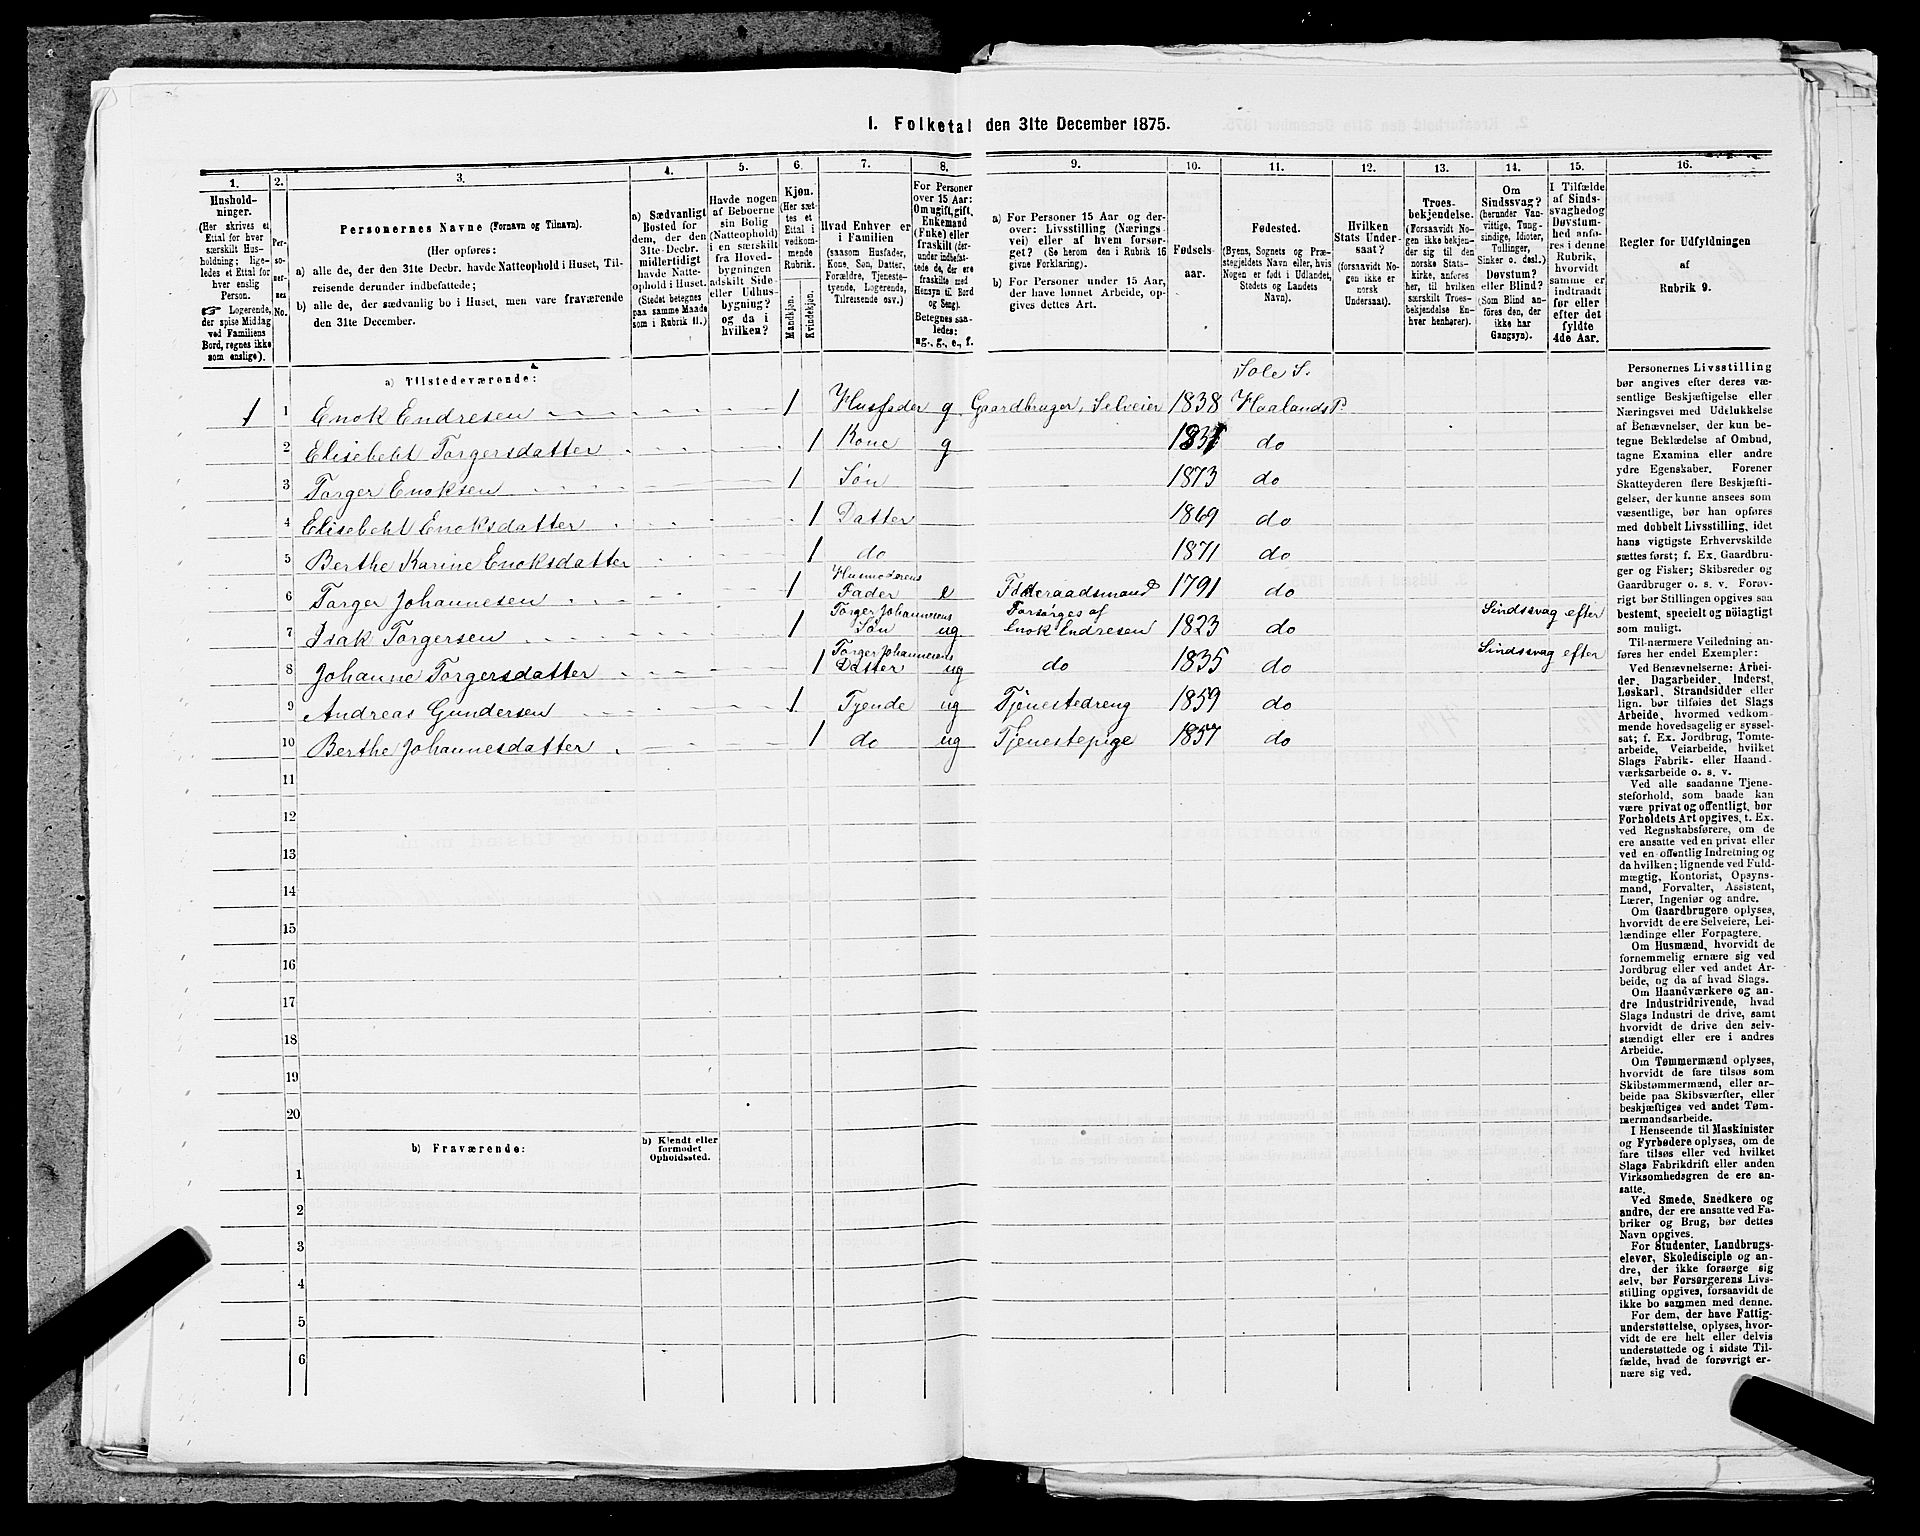 I. Folketal den 31te December 1875.
1. 2. 3. 4. 5. 6. 7. 8. 9. 10. 11. 12. 13. 14. 15. 16.
Husholdninger.
(Her skrives et
Ettal for hver
særskilt Husholdning;
ligeledes et Ettal for
hver enslig
Person.
☞ Logerende,
der spise Middag
ved Familiens
Bord, regnes ikke
som enslige).
Personernes No.
Personernes Navne (Fornavn og Tilnavn).
(Her opføres:
a) alle de, der den 31te Decbr. havde Natteophold i Huset, Tilreisende
derunder indbefattede;
b) alle de, der sædvanlig bo i Huset, men vare fraværende
den 31te December.
a) Sædvanligt
Bosted for
dem, der den
31te Decbr.
midlertidigt
havde Natteophold
i Huset.
(Stedet betegnes
paa samme Maade
som i Rubrik 11.)
Havde nogen
af Beboerne
sin Bolig
(Natteophold)
i en særskilt
fra Hovedbygningen
adskilt Side-
eller Udhusbygning?
og da i
hvilken?
Kjøn.
(Her sættes
et
Ettal i
vedkommende
Rubrik.
Mandkjøn.
Kvindekjøn.
Hvad Enhver er
i Familien
(saasom Husfader,
Kone, Søn, Datter,
Forældre, Tjenestetyende,
Logerende,
Tilreisende osv.)
For Personer
over 15 Aar:
Om ugift, gift,
Enkemand
(Enke) eller
fraskilt (derunder
indbefattede
de, der ere
fraskilte med
Hensyn til Bord
og Seng).
Betegnes saaledes:
ug., g., e., f.
a) For Personer 15 Aar og derover:
Livsstilling (Næringsvei)
eller af hvem forsørget?
(Se herom den i Rubrik 16
givne Forklaring).
b) For Personer under 15 Aar,
der have lønnet Arbeide, opgives
dettes Art.
Fødselsaar.
Fødested.
(Byens, Sognets og Præstegjeldets
Navn eller, hvis
Nogen er født i Udlandet,
Stedets og Landets
Navn).
Hvilken
Stats Undersaat?
(forsaavidt Nogen
ikke er
norsk
Undersaat).
Troesbekjendelse.
(Forsaavidt Nogen
ikke bekjender
sig til den
norske Statskirke,
anføres
her, til hvilken
særskilt Troesbekjendelse
Enhver
henhører).
Om
Sindssvag?
(herunder Vanvittige,
Tungsindige,
Idioter,
Tullinger,
Sinker o. desl.)
Døvstum?
eller Blind?
(Som Blind anføres
den, der
ikke har
Gangsyn).
I Tilfælde
af Sindssvaghed
og
Døvstumhed
anføres
i denne
Rubrik,
hvorvidt
samme er
indtraadt
før eller
efter det
fyldte
4de Aar.
Regler for Udfyldningen
af
Rubrik 9.
a) Tilstedeværende:
Sole S.
1 1 Enok Endresen 1 Husfader g Gaardbruger, Selveier 1838 Haalands P.
2 Elisebeht Torgersdatter 1 Kone g do
3 Torger Enoksen 1 Søn 1873 do
4 Elisebeht Enoksdatter 1 Datter 1869 do
5 Berthe Karine Enoksdatter 1 do 1871 do
6 Torger Johannesen 1 Husmoderens Fader e Föderaadsmand 1791 do
7 Isak Torgersen 1 Torger Johannesens Søn ug Forsørges af Enok Endresen 1823 do Sindssvag efter
8 Johanne Torgersdatter 1 Torger Johannesens Datter ug do 1835 do Sindssvag efter
9 Andreas Gundersen 1 Tyende ug Tjenestedreng 1859 do
10 Berthe Johannesdatter 1 do ug Tjenestepige 1857 do
11
12
13
14
15
16
17
18
19
20
b) Fraværende:
b) Kjendt eller
formodet
Opholdssted.
1
2
3
4
5
6
Personernes Livsstilling
bør angives efter deres væsentlige
Beskjæftigelse eller
Næringsvei med Udelukkelse
af Benævnelser, der kun betegne
Beklædelse af Ombud,
tagne Examina eller andre
ydre Egenskaber. Forener
Skatteyderen flere Beskjæftigelser,
der kunne ansees som
væsentlige, bør han opføres
med dobbelt Livsstilling, idet
hans vigtigste Erhvervskilde
sættes først; f. Ex. Gaardbruger
og Fisker; Skibsreder og
Gaardbruger o. s. v. Forøvrigt
bør Stillingen opgives saa
bestemt, specielt og nøiagtigt
som muligt.
Til nærmere Veiledning anføres
her endel Exempler:
Ved Benævnelserne: Arbeider,
Dagarbeider, Inderst,
Løskarl, Strandsidder eller
lign. bør tilføies det Slags
Arbeide, hvormed vedkommende
hovedsagelig er sysselsat;
f. Ex. Jordbrug, Tomtearbeide,
Veiarbeide, hvilket
Slags Fabrik- eller Haandværksarbeide
o. s. v.
Ved alle saadanne Tjenesteforhold,
som baade kan
være privat og offentligt, bør
Forholdets Art opgives, t. Ex.
ved Regnskabsførere, om de
ere ansatte ved en privat eller
ved en offentlig Indretning og
da hvilken; lignende ved Fuldmægtig,
Kontorist, Opsynsmand,
Forvalter, Assistent,
Lærer, Ingeniør og andre.
Om Gaardbrugere oplyses,
hvorvidt de ere Selveiere, Leilændinge
eller Forpagtere.
Om Husmænd, hvorvidt de
fornemmelig ernære sig ved
Jordbrug eller ved andet Arbeide,
og da af hvad Slags.
Om Haandværkere og andre
Industridrivende, hvad
Slags Industri de drive, samt
hvorvidt de drive den selvstændigt
eller ere i andres
Arbeide.
Om Tømmermænd oplyses,
hvorvidt de fare tilsøs som
Skibstømmermænd, eller arbeide
paa Skibsværfter, eller
beskjæftiges ved andet Tømmermandsarbeide.
I Henseende til Maskinister
og Fyrbødere oplyses, om de
fare tilsøs eller ved hvilket
Slags Fabrikdrift eller anden
Virksomhedsgren de ere ansatte.
Ved Smede, Snedkere og
andre, der ere ansatte ved Fabriker
og Brug, bør dettes
Navn opgives.
For Studenter, Landbrugselever,
Skoledisciple og andre,
der ikke forsørge sig
selv, bør Forsørgerens Livsstilling
opgives, forsaavidt de
ikke bo sammen med denne.
For dem, der have Fattigunderstøttelse,
oplyses, hvorvidt
de ere helt eller delvis
understøttede og i sidste Tilfælde,
hvad de forøvrigt ernære
sig ved.